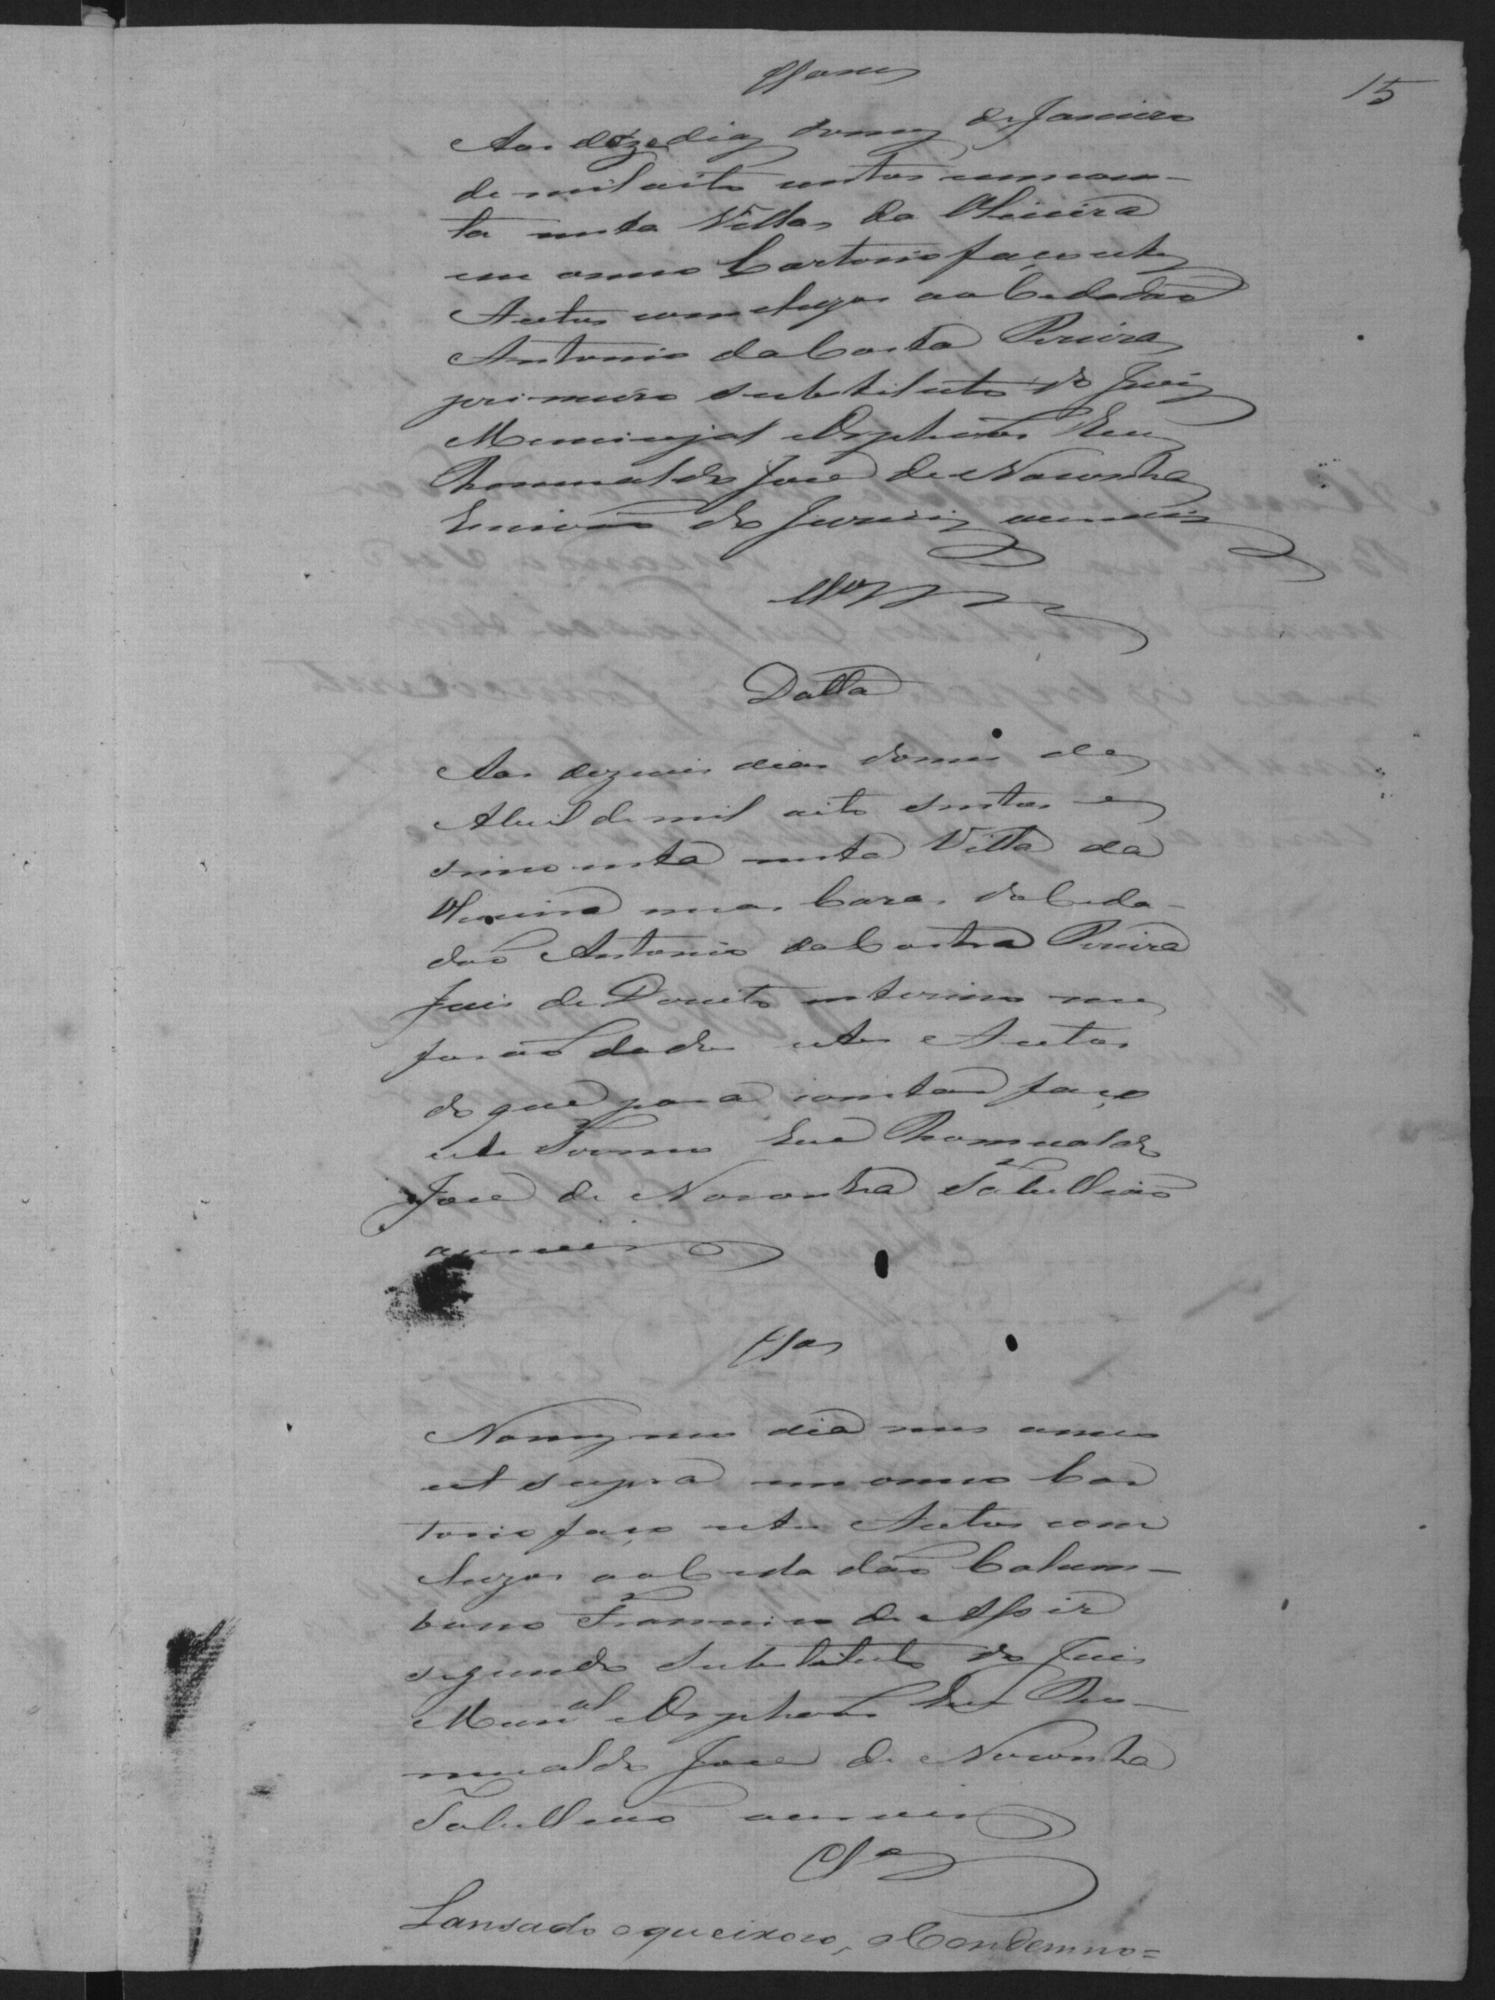 15
Clsam
Aos doze dias do mez de Janeiro
de mil oito centos sincoen-
ta nesta Villa da Oliveira
em o meu Cartorio faço estes
Autos conclusos ao Cidadão
Antonio da Costa Pereira
primeiro substituto do Juiz
Municipal e Orphãos Eu
Romualdo José de Noronha
Escrivão do Jury escrevi
Clsos
Datta
Aos dezseis dias do mes de
Abril de mil oito sentos e
sincoenta nesta Villa da
Oliveira em a Caza do Cida-
dão Antonio da Costa Pereira
Juis de Direito interino me
forão dados estes Autos
do que para constar faço
este Termo Eu Romualdo
José de Noronha Tabellião
escrevi
Clsos
No mesmo dia mes e anno
ut supra em o meu Car
torio faço estes Autos con
cluzos ao Cidadão Colum-
bano Francisco de Assis
segundo substituto do Juis
Munal e Orphãos Eu Ro-
mualdo José de Noronha
Tabellião escrevi
Clsos
Lansado o queixoso, o Condemno=